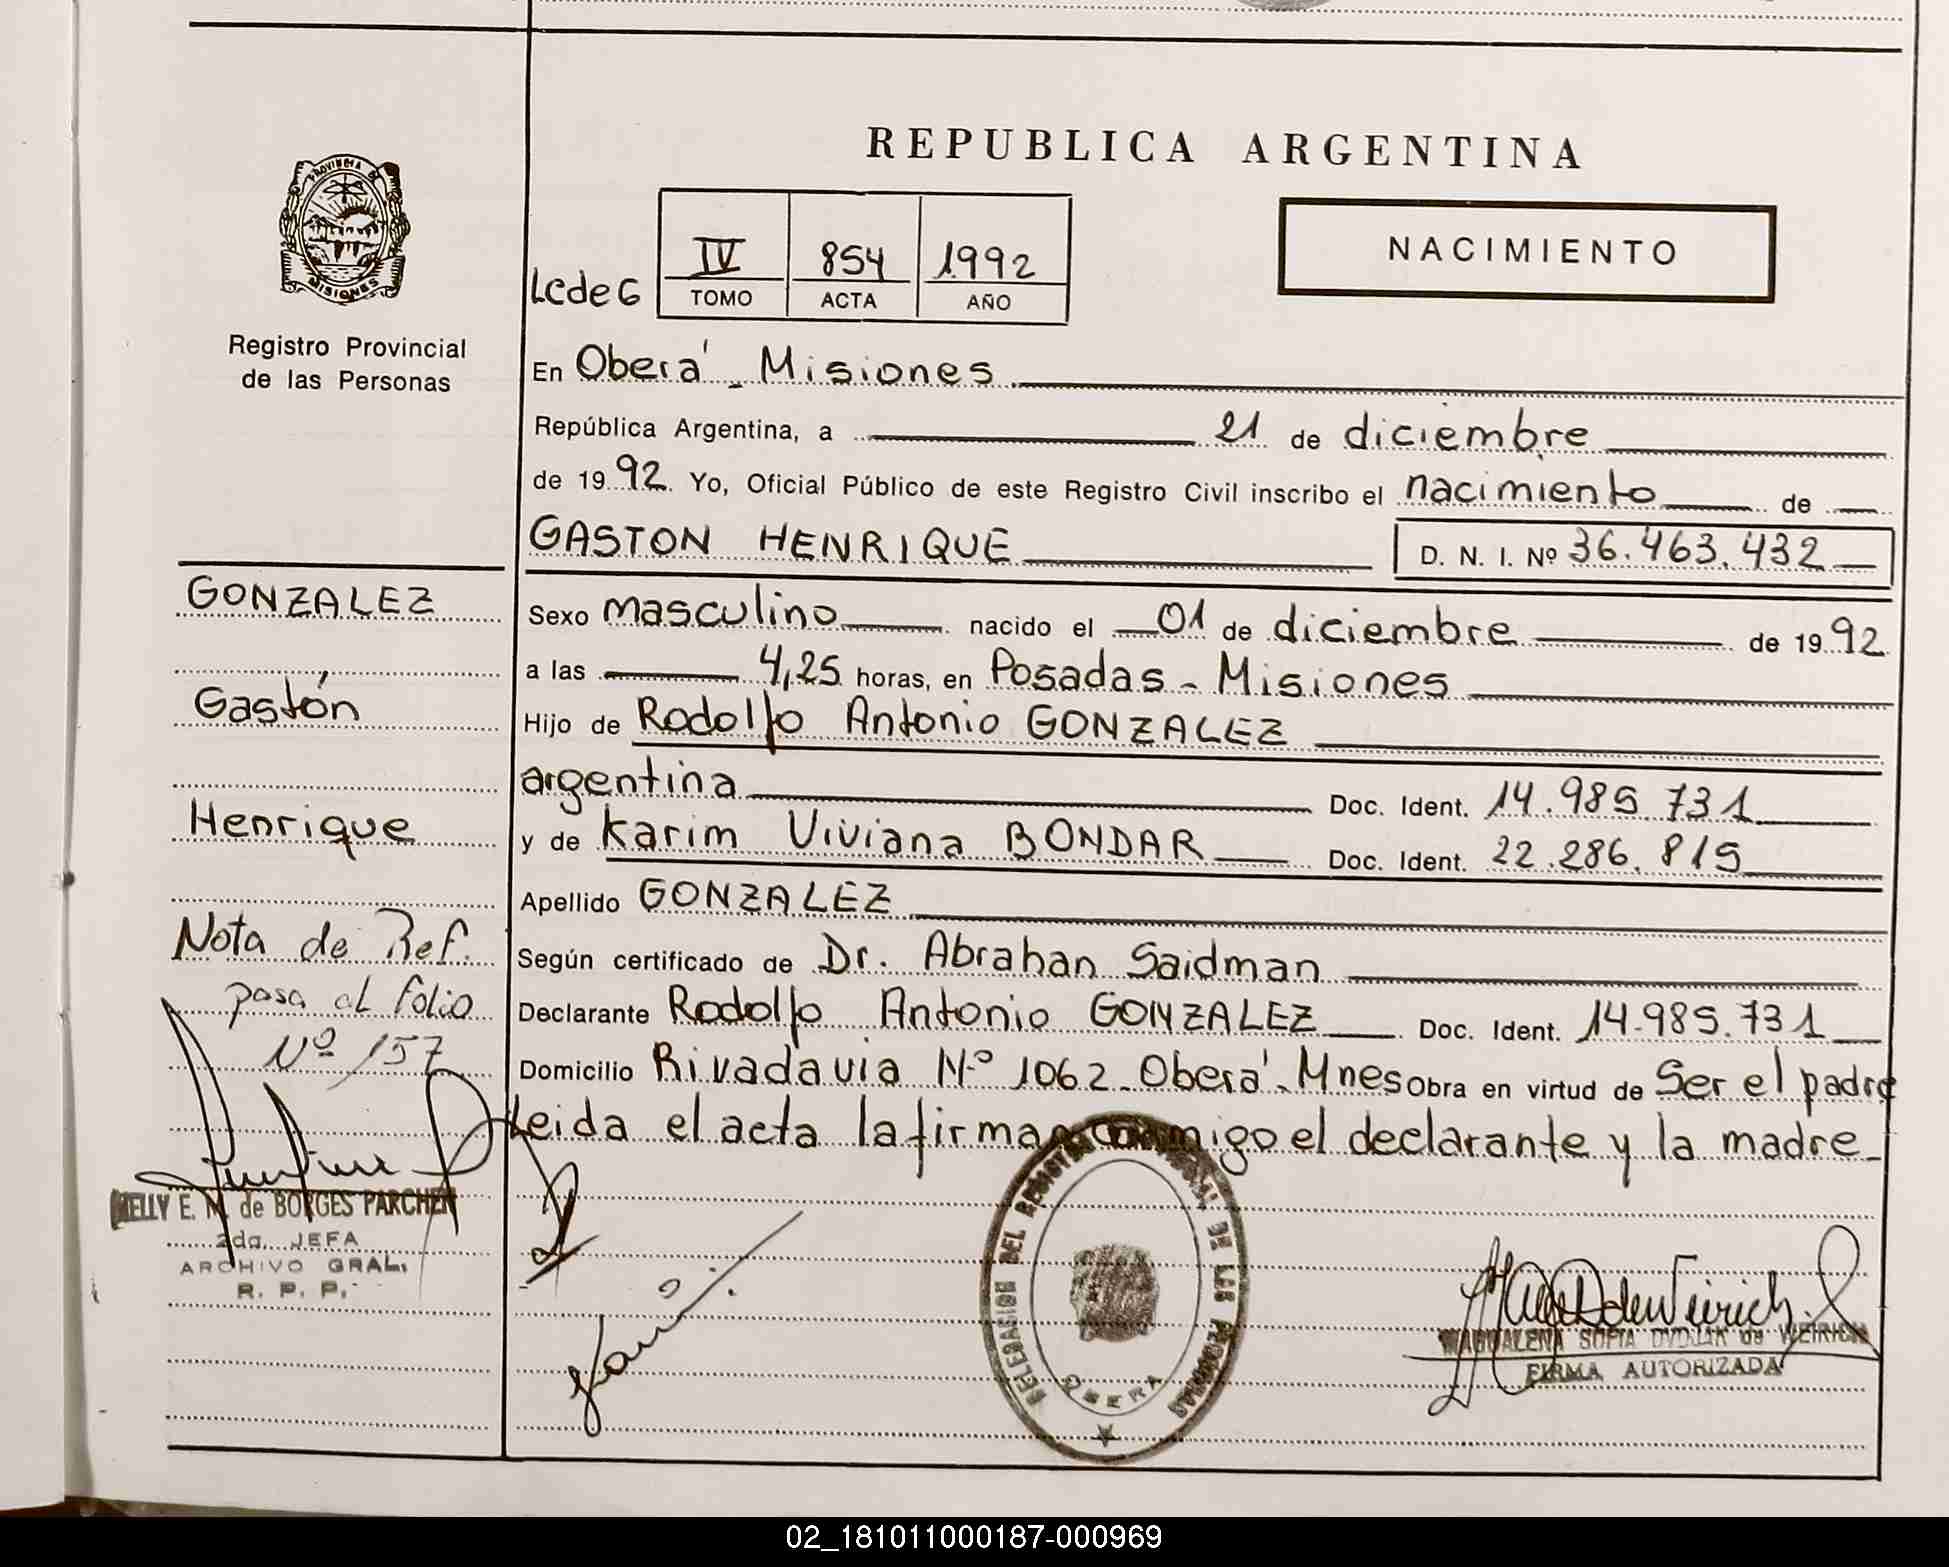 REPUBLICA ARGENTINA
PROVINCIA DE
MISIONES
Registro Provincial
de las Personas
NACIMIENTO
LcdeG
IV 854 1992
TOMO ACTA AÑO
En Oberá - Misiones
República Argentina, a 21 de diciembre
de 1992 Yo, Oficial Público de este Registro Civil inscribo el nacimiento de
GASTON HENRIQUE D. N. I. Nº 36.463.432
Sexo masculino nacido el 01 de diciembre de 1992
a las 4,25 horas, en Posadas - Misiones
Hijo de Rodolfo Antonio GONZALEZ
argentina Doc. Ident. 14.985.731
y de Karim Viviana BONDAR Doc. Ident. 22.286.815
Apellido GONZALEZ
Según certificado de Dr. Abrahan Saidman
Declarante Rodolfo Antonio GONZALEZ Doc. Ident. 14.985.731
Domicilio Rivadavia Nº 1062 - Oberá - Mnes Obra en virtud de Ser el padre
Leida el acta la firman conmigo el declarante y la madre -
GONZALEZ
Gastón
Henrique
Nota de Ref.
pasa al folio
Nº 157
NELLY E. M. de BORGES PARCHEN
2da. JEFA
ARCHIVO GRAL.
R. P. P.
DELEGACION DEL REGISTRO PROVINCIAL DE LAS PERSONAS
OBERA
MAGDALENA SOFIA DVDJAK de WEIRICH
FIRMA AUTORIZADA
02_181011000187-000969